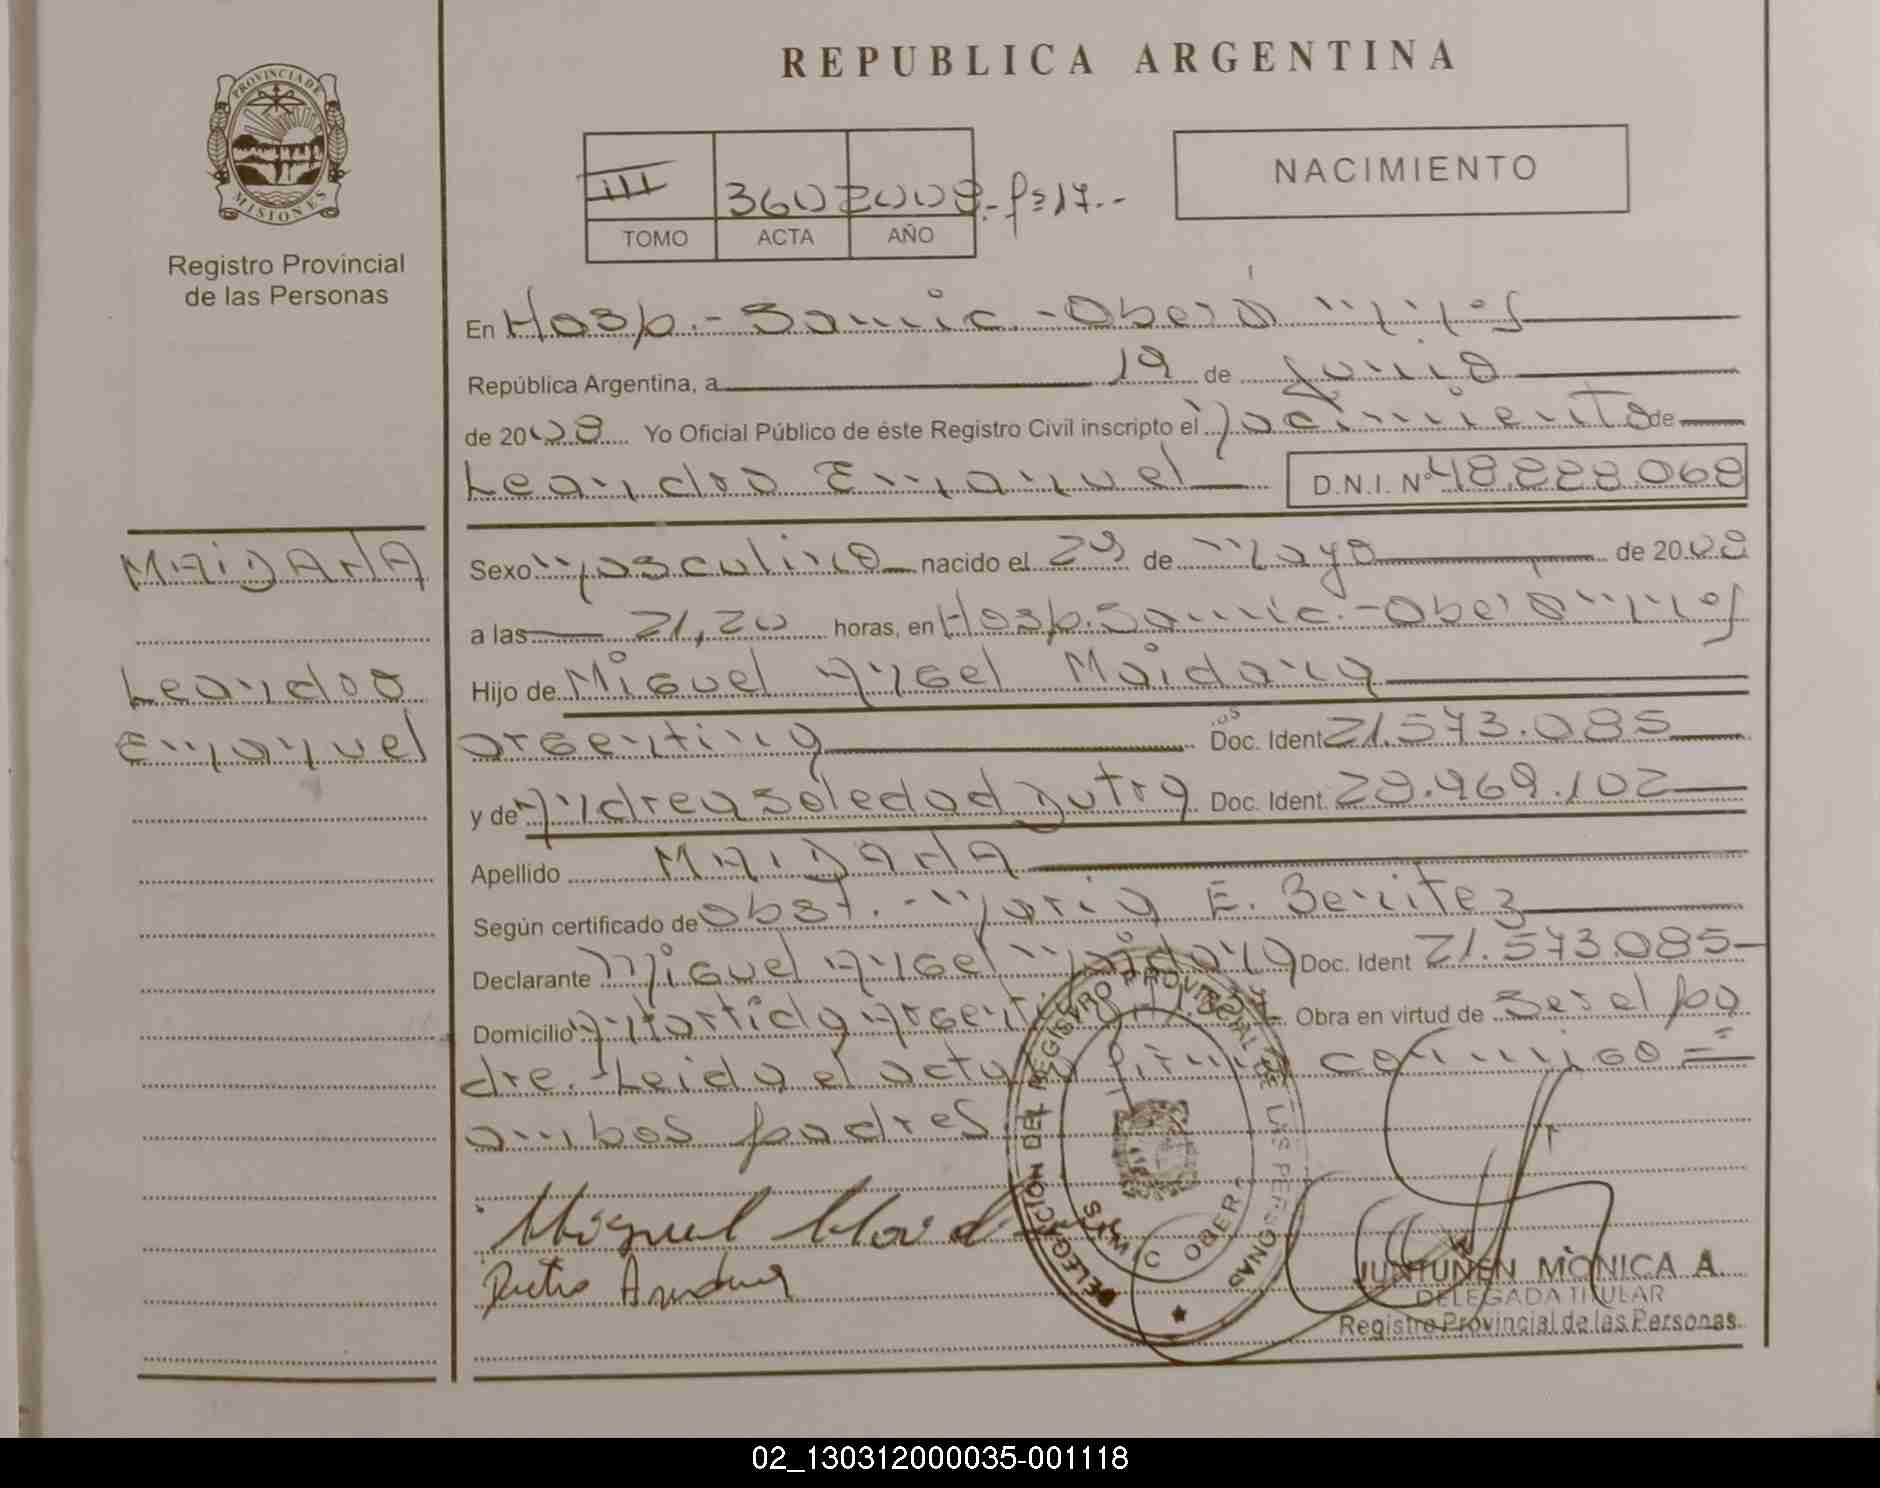 REPUBLICA ARGENTINA
PROVINCIA DE
MISIONES
Registro Provincial
de las Personas
III 360 2008.- fº 17.-
TOMO ACTA AÑO
NACIMIENTO
En Hosp.- Samic.-Oberá Mnes
República Argentina, a 19 de junio
de 2008 Yo Oficial Público de éste Registro Civil inscripto el Nacimiento de
Leandro Emanuel D.N.I. Nº 48.888.068
MAIDANA
Leandro
Emanuel
Sexo Masculino nacido el 29 de Mayo de 2008
a las 21,20 horas, en Hosp. Samic.-Oberá Mnes
Hijo de Miguel Angel Maidana
argentina Doc. Ident 21.573.085
y de Andrea Soledad Dutra Doc. Ident. 28.969.102
Apellido MAIDANA
Según certificado de obst. - Maria E. Benitez
Declarante Miguel Angel Maidana Doc. Ident 21.573.085
Domicilio Antartida Argentina Obra en virtud de Ser el pa
dre.-Leida el acta firma conmigo =
ambos padres
Miguel Maid
Dutra Andrea
DELEGACION DEL REGISTRO PROVINCIAL DE LAS PERSONAS
JUNTUNEN MÓNICA A.
DELEGADA TITULAR
Registro Provincial de las Personas
02_130312000035-001118